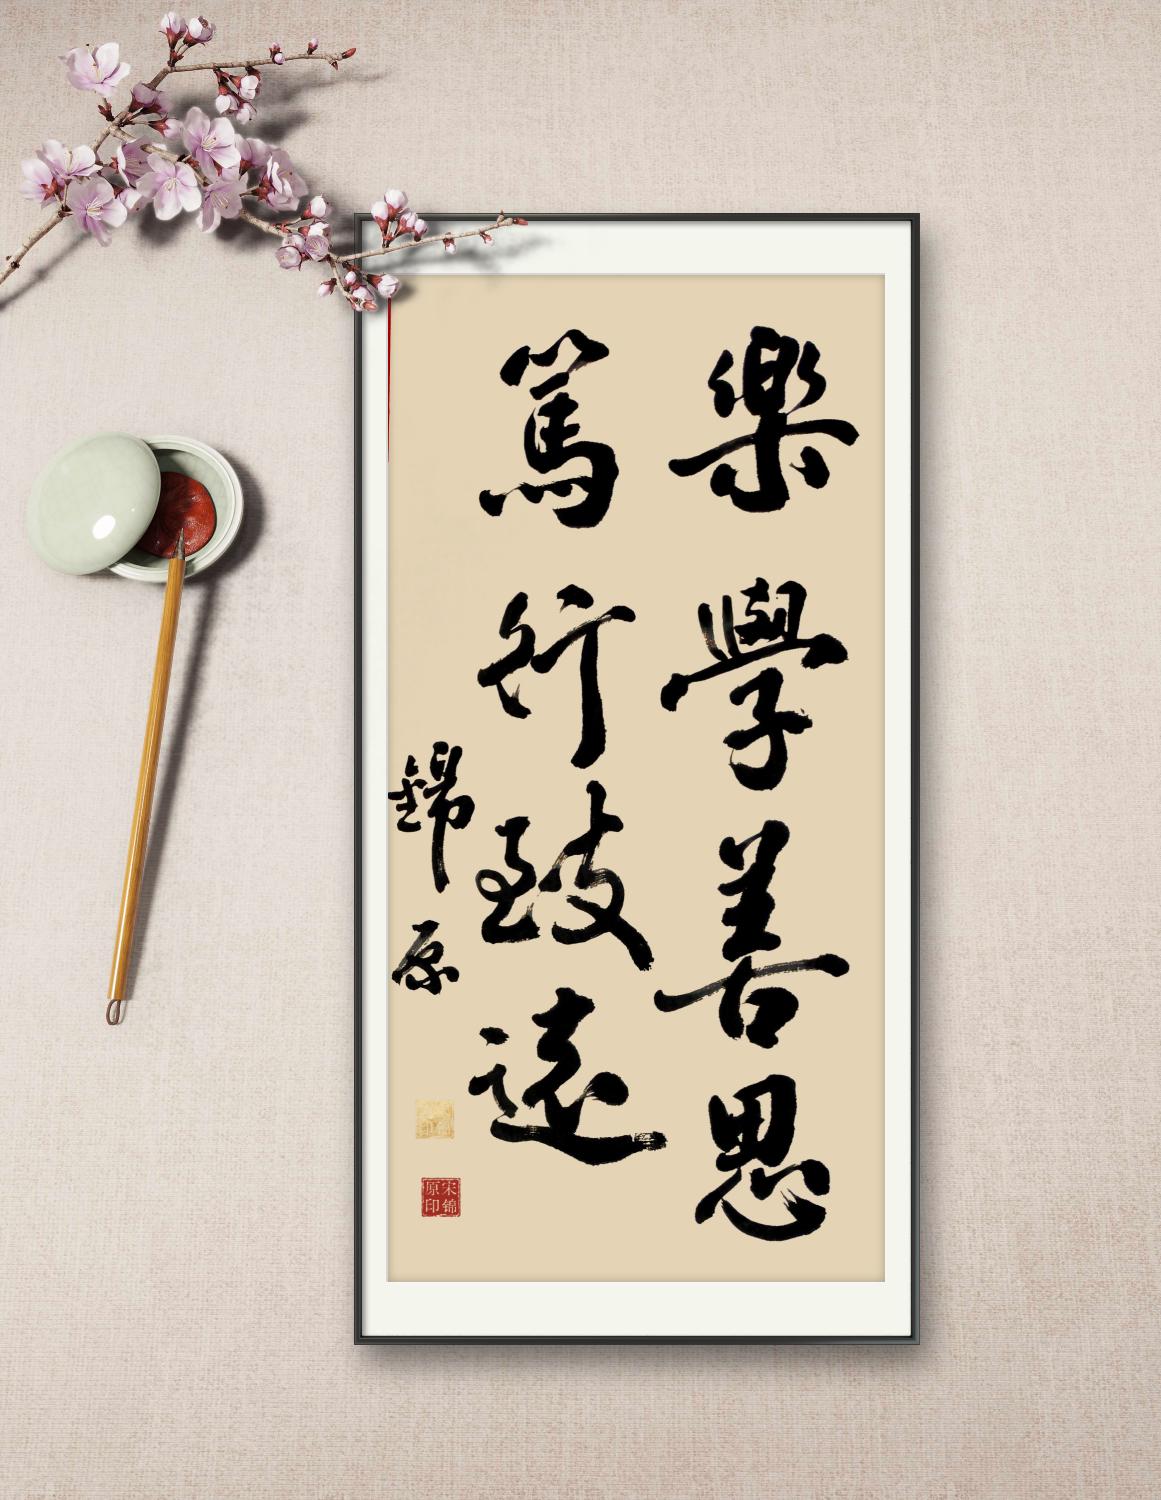 樂學善思
篤行致遠
錦原
宋锦
原印